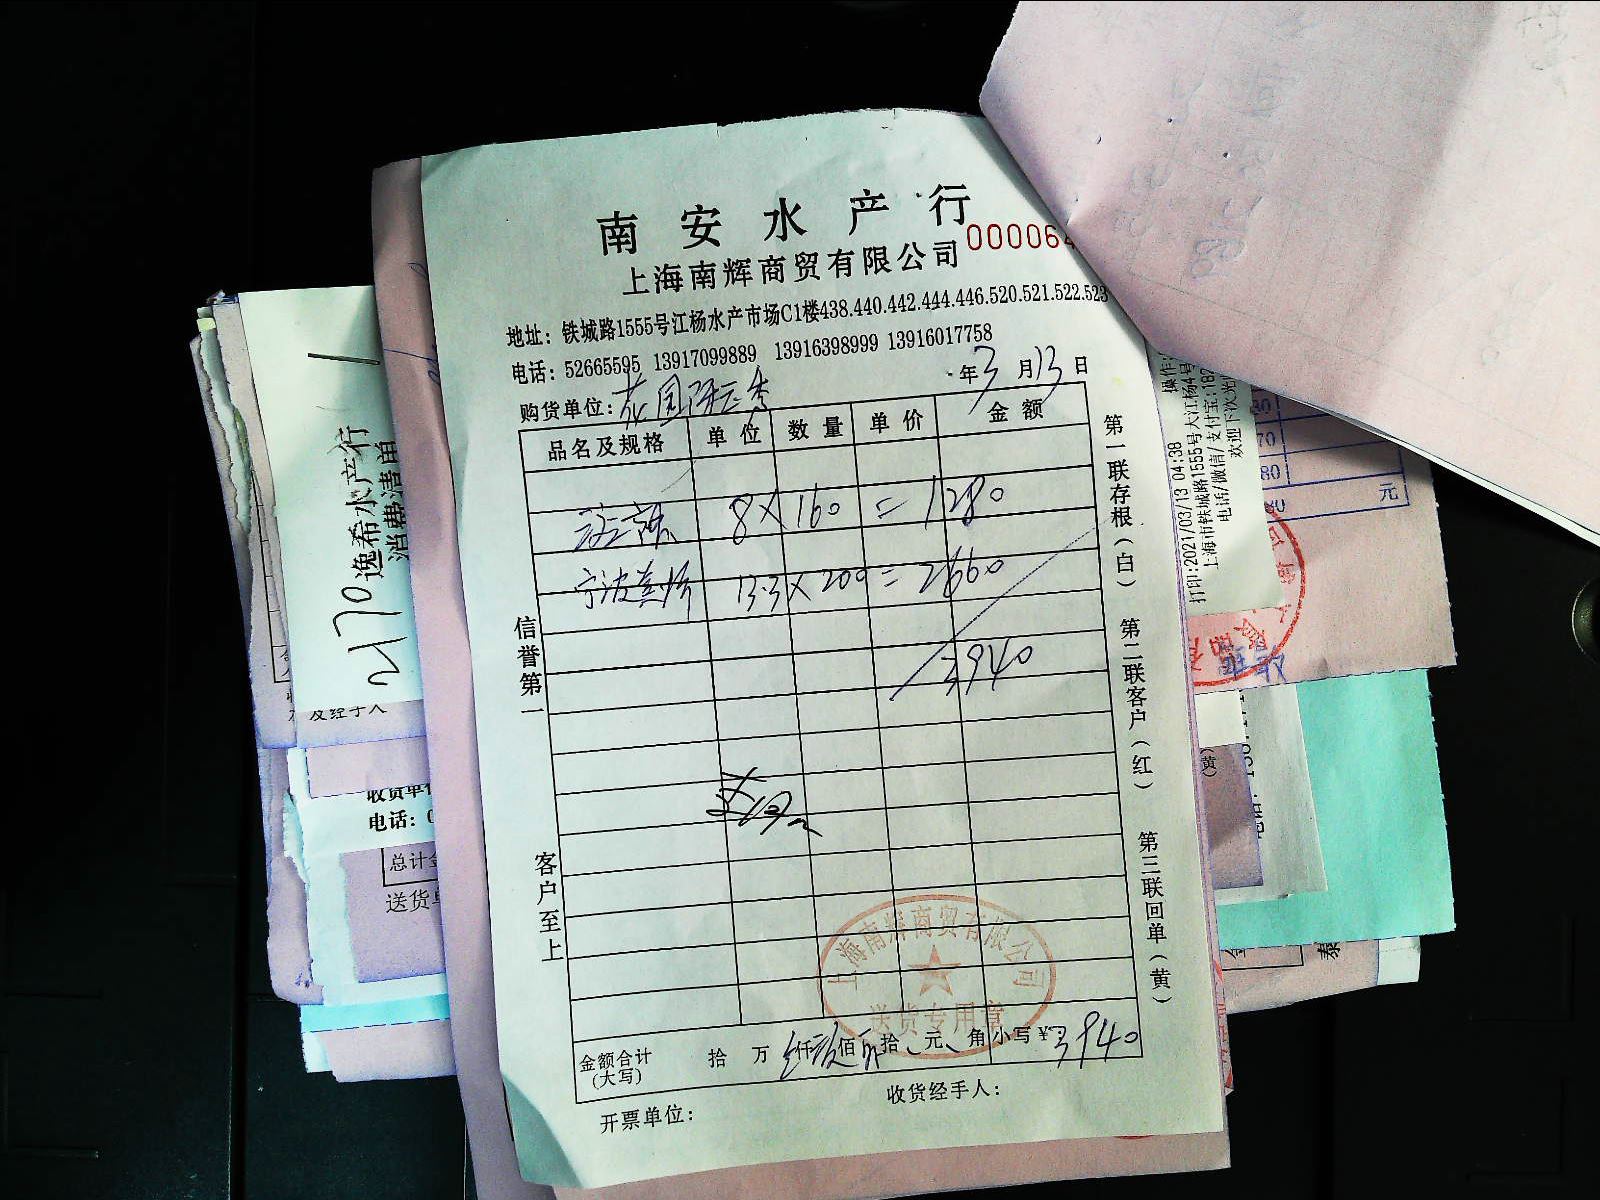 南安水产行
上海南辉商贸有限公司
00006
地址：铁城路1555号江杨水产市场C1楼438.440.442.444.446.520.521.522.523
电话：52665595 13917099889 13916398999 13916017758
年3月13日
购货单位：花园
品名及规格 单位 数量 单价 金额
8×160=1280
宁波 13.3×200=2660
3940
信誉第一
客户至上
第一联存根（白）
第二联客户（红）
第三联回单（黄）
上海南辉商贸有限公司
送货专用章
金额合计（大写） 拾 万 仟 佰 拾 元 角 小写￥：3940
开票单位：
收货经手人：
逸希水产行
消费清单
2170
及经手人
收货单
电话：
总计金
送货单
操作：
打印:2021/03/13 04:38
上海市铁城路1555号大江杨4号
电话/微信/支付宝:182
欢迎下次光临
30
70
80
元
（黄）